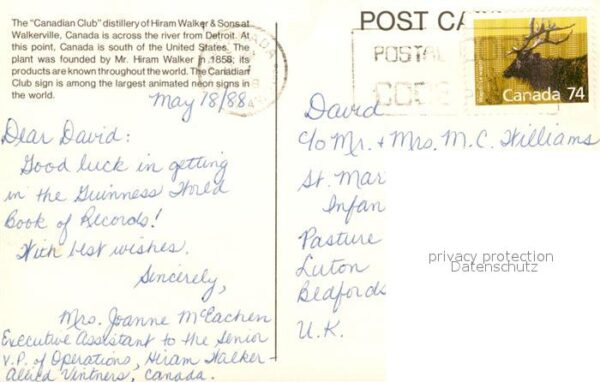 The "Canadian Club" distillery of Hiram Walker & Sons at
Walkerville, Canada is across the river from Detroit. At
this point, Canada is south of the United States. The
plant was founded by Mr. Hiram Walker in 1858; its
products are known throughout the world. The Canadian
Club sign is among the largest animated neon signs in
the world.
May 18/88
Dear David:
Good luck in getting
in the Guinness World
Book of Records!
With best wishes.
Sincerely,
Mrs. Joanne McEachen
Executive Assistant to the Senior
V.P. of Operations, Hiram Walker-
Allied Vintners, Canada.
POST CA
POSTAL
CODE
Canada 74
David
c/o Mr. & Mrs. M.C. Williams
St. Mar
Infan
Pasture
Luton
Bedfords
U.K.
privacy protection
Datenschutz